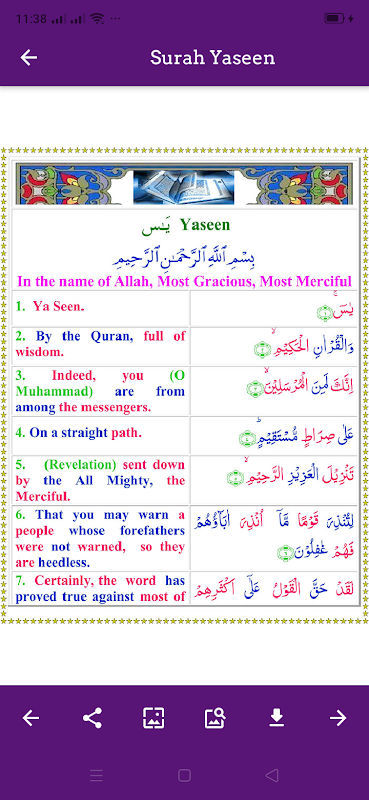 11:38
Surah Yaseen
يٰسٓ Yaseen
بِسْمِ ٱللَّهِ ٱلرَّحْمَٰنِ ٱلرَّحِيمِ
In the name of Allah, Most Gracious, Most Merciful
1. Ya Seen.
يٰسٓ ۚ ﴿۱﴾
2. By the Quran, full of
wisdom.
وَالْقُرْاٰنِ الْحَكِيْمِ ۙ ﴿۲﴾
3. Indeed, you (O
Muhammad) are from
among the messengers.
اِنَّكَ لَمِنَ الْمُرْسَلِيْنَ ۙ ﴿۳﴾
4. On a straight path.
عَلٰى صِرَاطٍ مُّسْتَقِيْمٍ ؕ ﴿۴﴾
5. (Revelation) sent down
by the All Mighty, the
Merciful.
تَنْزِيْلَ الْعَزِيْزِ الرَّحِيْمِ ۙ ﴿۵﴾
6. That you may warn a
people whose forefathers
were not warned, so they
are heedless.
لِتُنْذِرَ قَوْمًا مَّاۤ اُنْذِرَ اٰبَآؤُهُمْ
فَهُمْ غٰفِلُوْنَ ﴿۶﴾
7. Certainly, the word has
proved true against most of
لَقَدْ حَقَّ الْقَوْلُ عَلٰۤى اَكْثَرِهِمْ